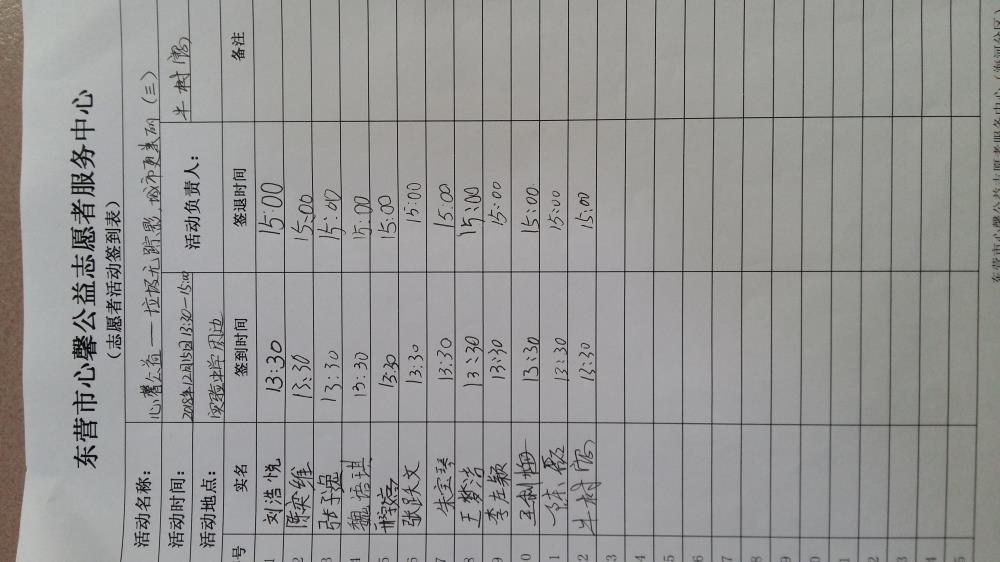 东营市心馨公益志愿者服务中心
（志愿者活动签到表）
活动名称： 心馨公益——垃圾无踪影，城市更美丽（三）
活动时间： 2018年12月15日13:30-15:00 活动负责人： 牛树
活动地点： 实验中学周边
号 实名 签到时间 签退时间 备注
1 刘浩悦 13:30 15:00
2 陈奕维 13:30 15:00
3 张子逸 13:30 15:00
4 魏语琪 13:30 15:00
5 13:30 15:00
6 张跃文 13:30 15:00
7 朱宝琴 13:30 15:00
8 王梦洁 13:30 15:00
9 李在颖 13:30 15:00
0 王利梅 13:30 15:00
1 陈磊 13:30 15:00
2 牛树 13:30 15:00
3
4
5
6
7
8
9
0
1
2
3
4
5
东营市心馨公益志愿者服务中心